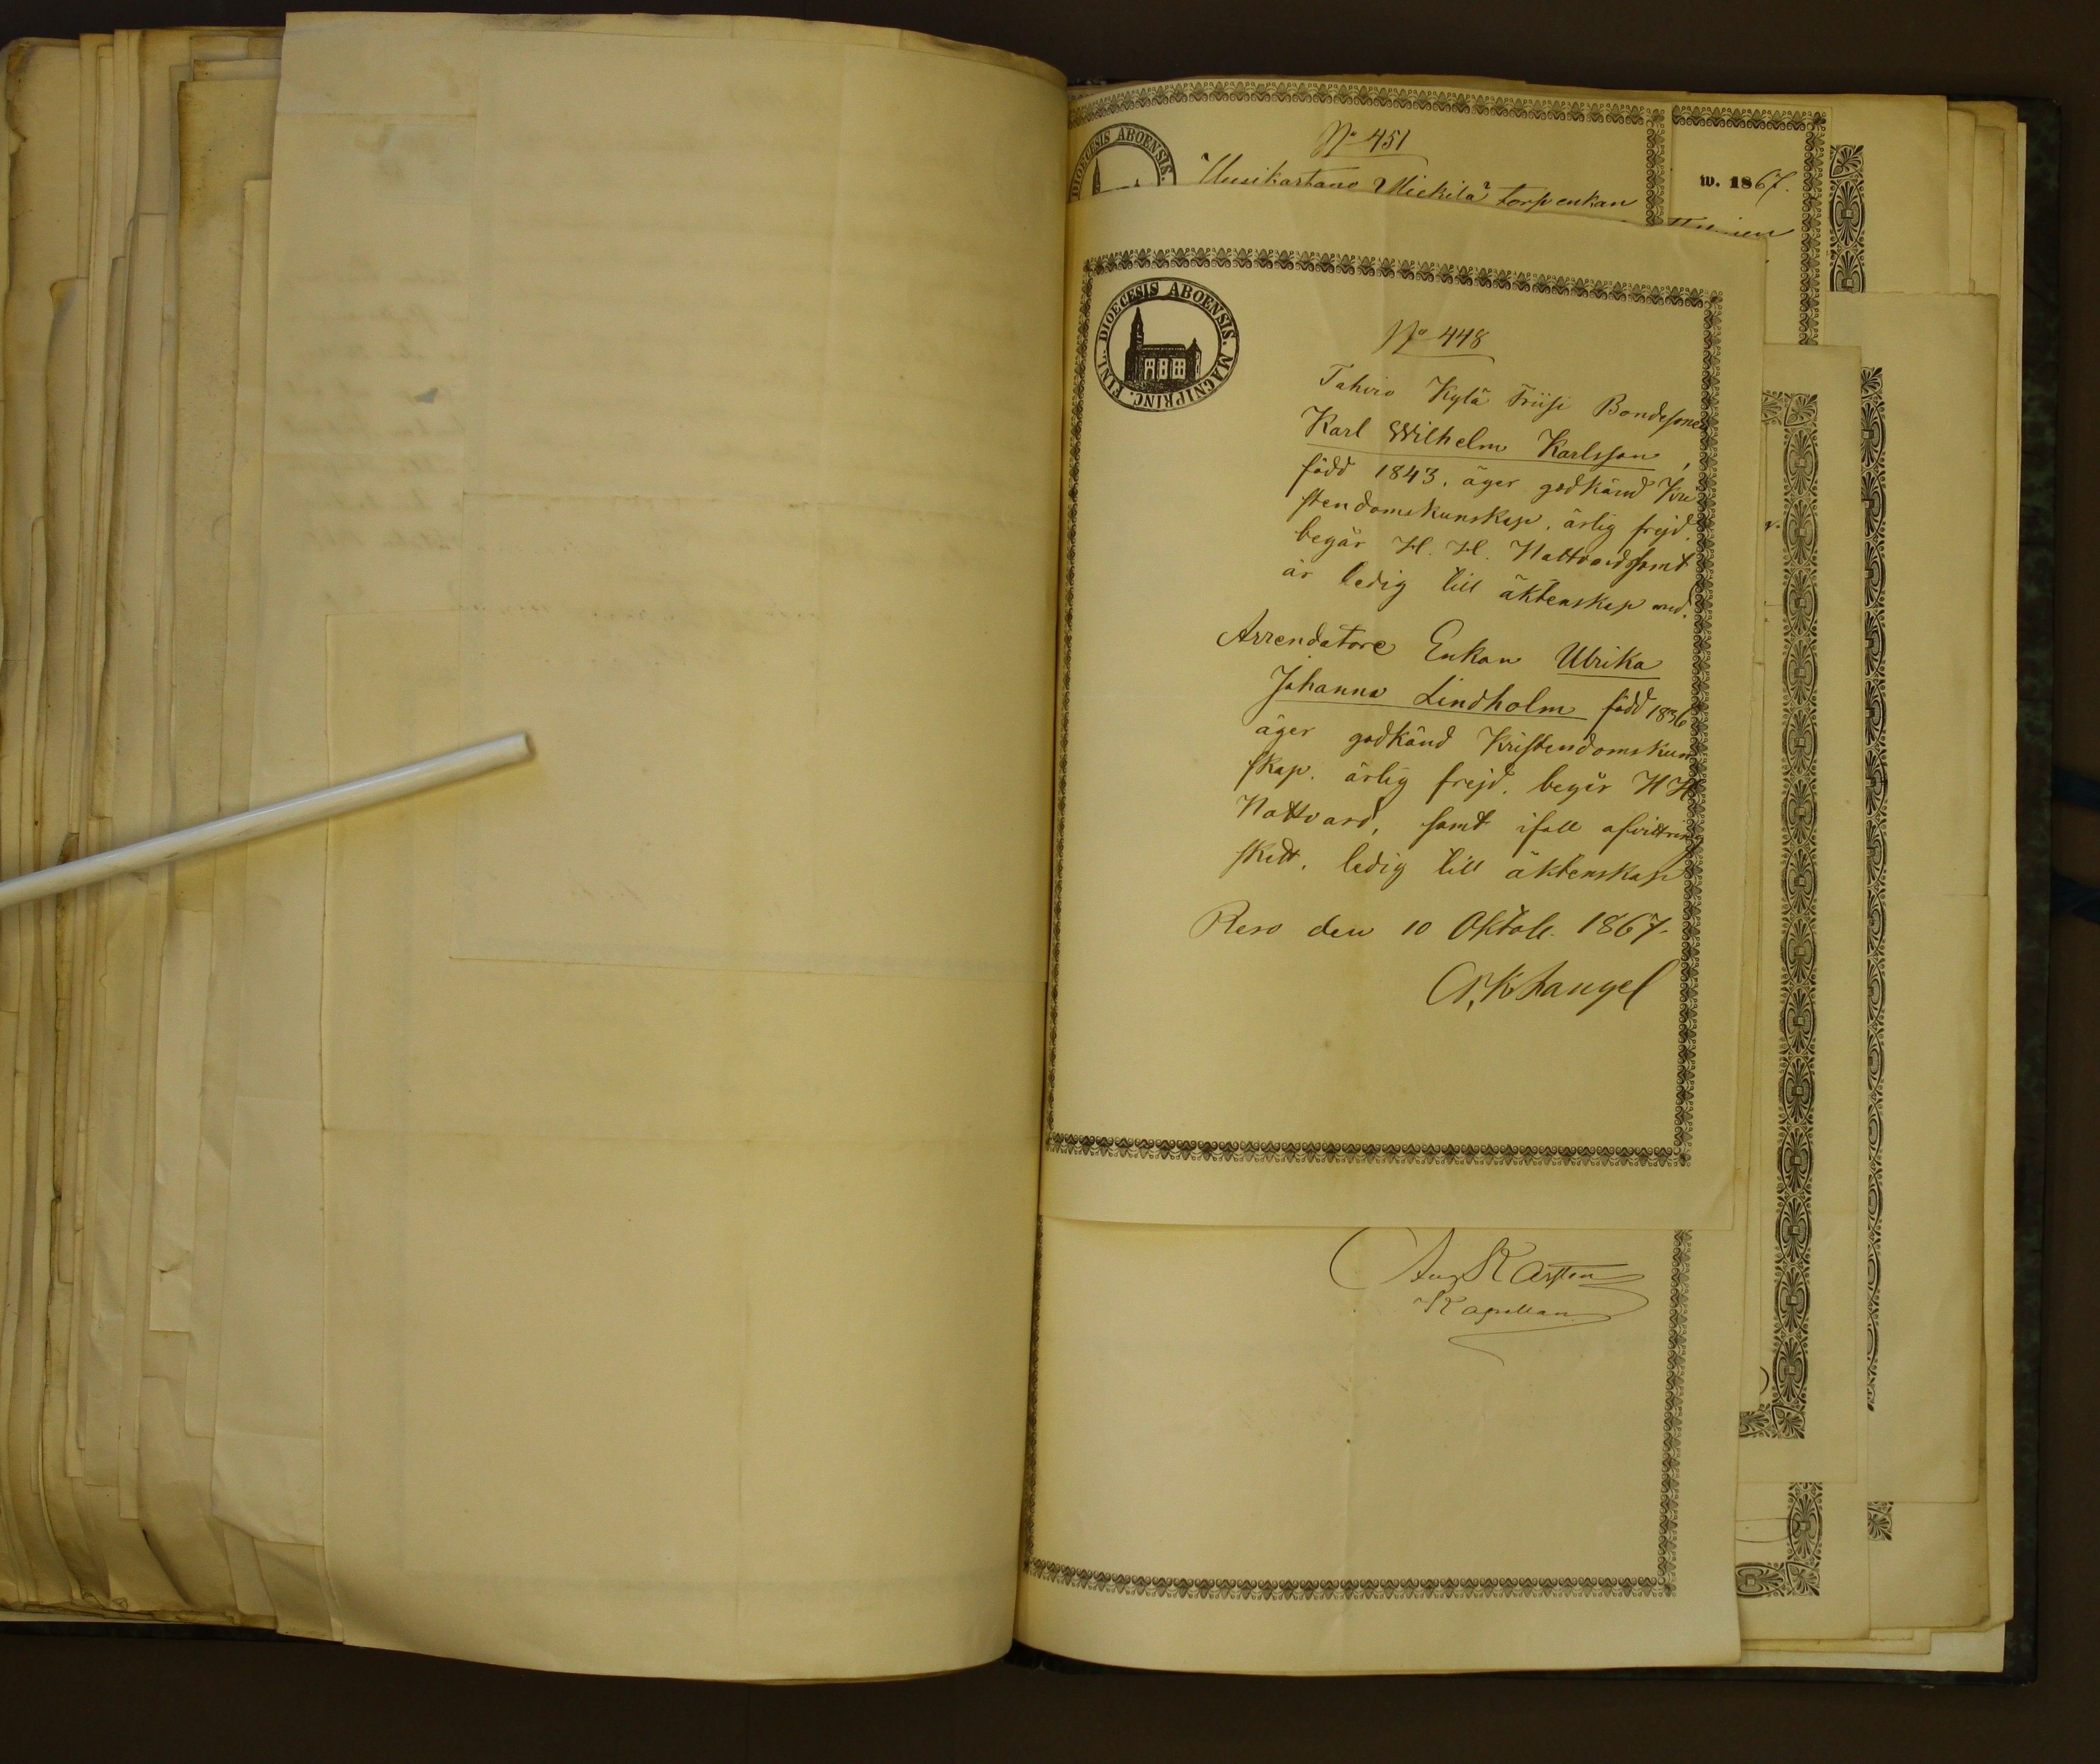 No 451
Uusikartano Mickilä torpenkan
w. 1867.
DIOECESIS ABOENSIS.
FINL. DIOECESIS ABOENSIS. MAGNIPRINC.
No 448
Tahvio Kylä Friisi Bondesonen
Karl Wilhelm Karlsson,
född 1843, äger godkänd Kri
stendomskunskap, ärlig frejd,
begår H. H. Nattvard samt
är ledig till äktenskap med.
Arrendatore Enkan Ulrika
Johanna Lindholm född 1836
äger godkänd Kristendomskun
skap. ärlig frejd. begår H H
Nattvard, samt ifall afvittring
skett, ledig till äktenskap
Reso den 10 Oktob. 1867.
Aug Karsten
Kapellan